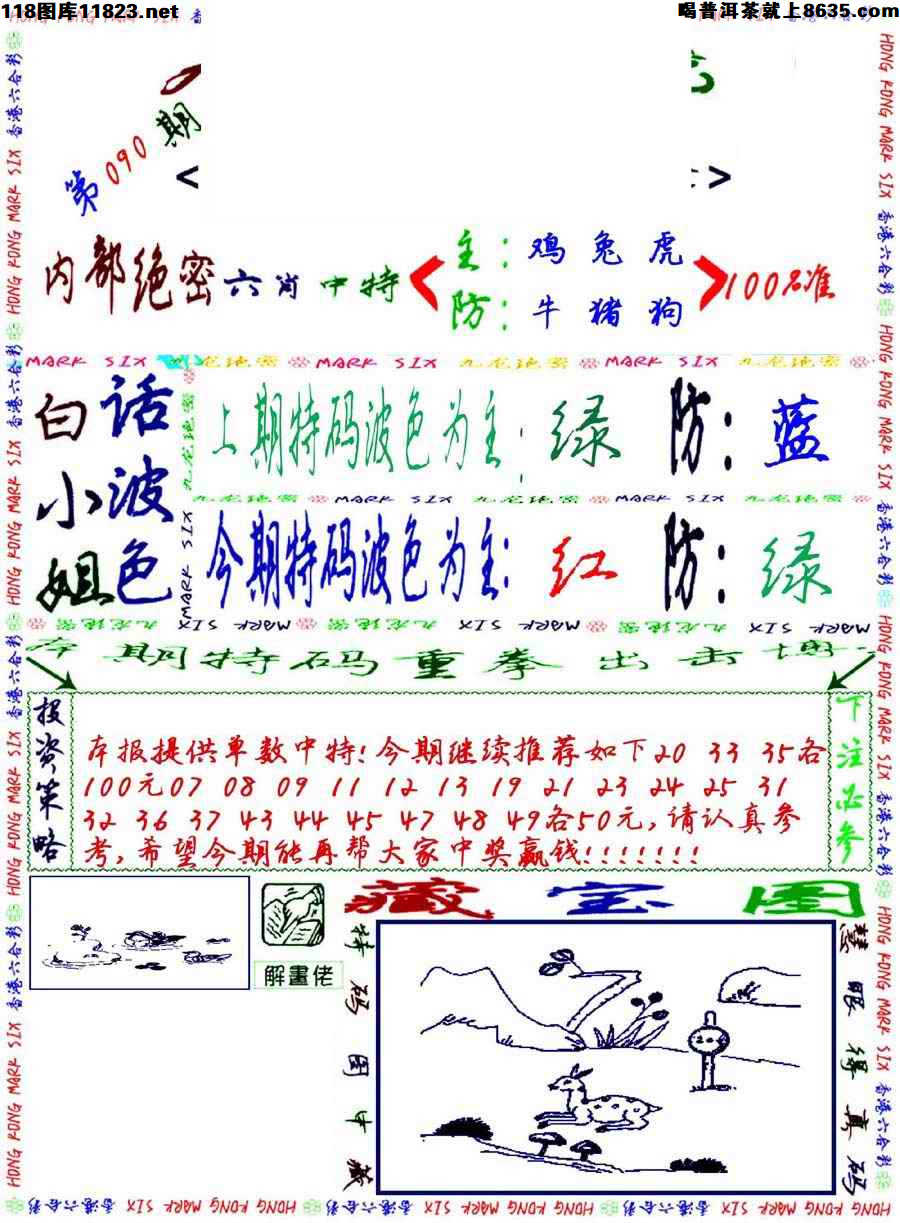 118图库11823.net
喝普洱茶就上8635.com
第090期
< >
内部绝密六肖中特
主:鸡兔虎
防:牛猪狗
100%准
白话小波姐色
上期特码波色为主:绿 防:蓝
今期特码波色为主:红 防:绿
期特码重拳出击
投资策略
本报提供单数中特!今期继续推荐如下20 33 35各
100元07 08 09 11 12 13 19 21 23 24 25 31
32 36 37 43 44 45 47 48 49各50元,请认真参
考,希望今期能再帮大家中奖赢钱!!!!!!!
下注必参
解畫佬
藏宝图
特码图中藏
慧眼得真码
HONG KONG MARK SIX 香港六合彩
MARK SIX 九龙绝密